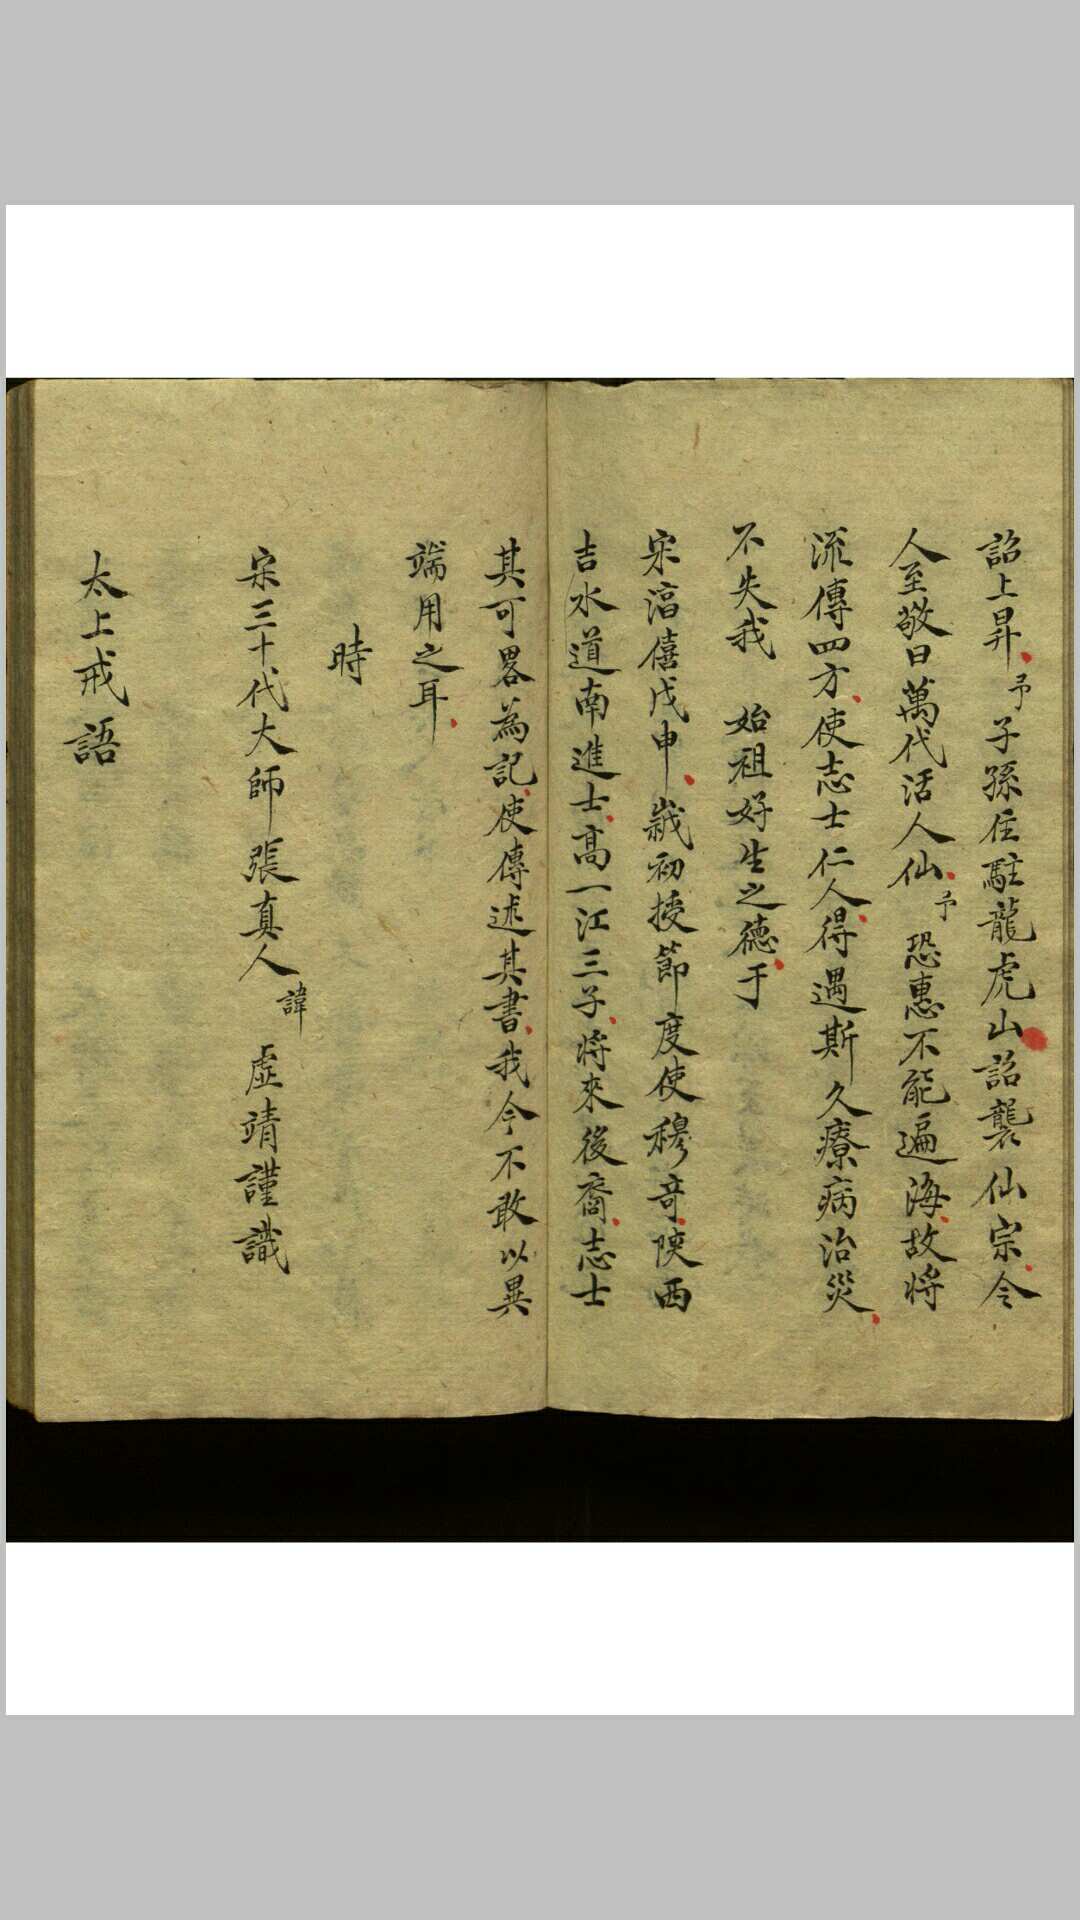 詔上昇予子孫住駐龍虎山詔襲仙宗令
人至敬曰萬代活人仙予恐惠不能遍海故將
流傳四方使志士仁人得遇斯久療病治災
不失我 始祖好生之德于
宋滈僖戊申歲初授節度使穆竒陝西
吉水道南進士高一江三子將來後裔志士
其可畧為記使傳述其書我今不敢以異
端用之耳
時
宋三十代大師張真人諱 虛靖謹識
太上戒語